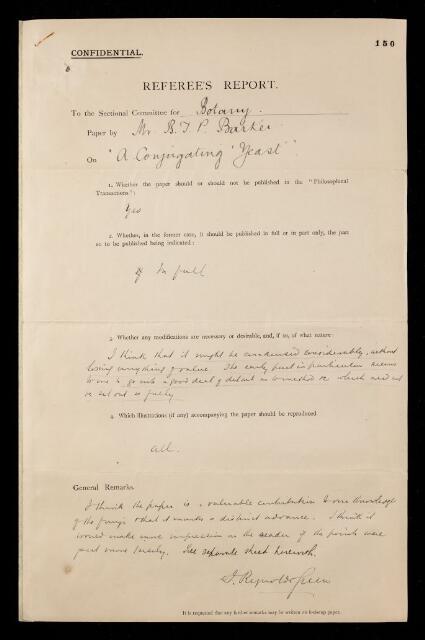 150
CONFIDENTIAL.
REFEREE'S REPORT.
To the Sectional Committee for Botany.
Paper by Mr. B. T. P. Barker
On "A Conjugating 'Yeast'".
1. Whether the paper should or should not be published in the "Philosophical
Transactions":
Yes
2. Whether, in the former case, it should be published in full or in part only, the part
so to be published being indicated:
In full
3. Whether any modifications are necessary or desirable, and, if so, of what nature:
I think that it might be condensed considerably, without
losing anything of value. The early part in particular seems
to me to go into a good deal of detail as to which need not
be set out so fully
4. Which illustrations (if any) accompanying the paper should be reproduced
All.
General Remarks.
I think the paper is a valuable contribution to our knowledge
of the fungi & that it marks a distinct advance. I think it
would make more impression on the reader if the points were
put more tersely. See separate sheet herewith.
J. Reynolds Green
It is requested that any further remarks may be written on foolscap paper.